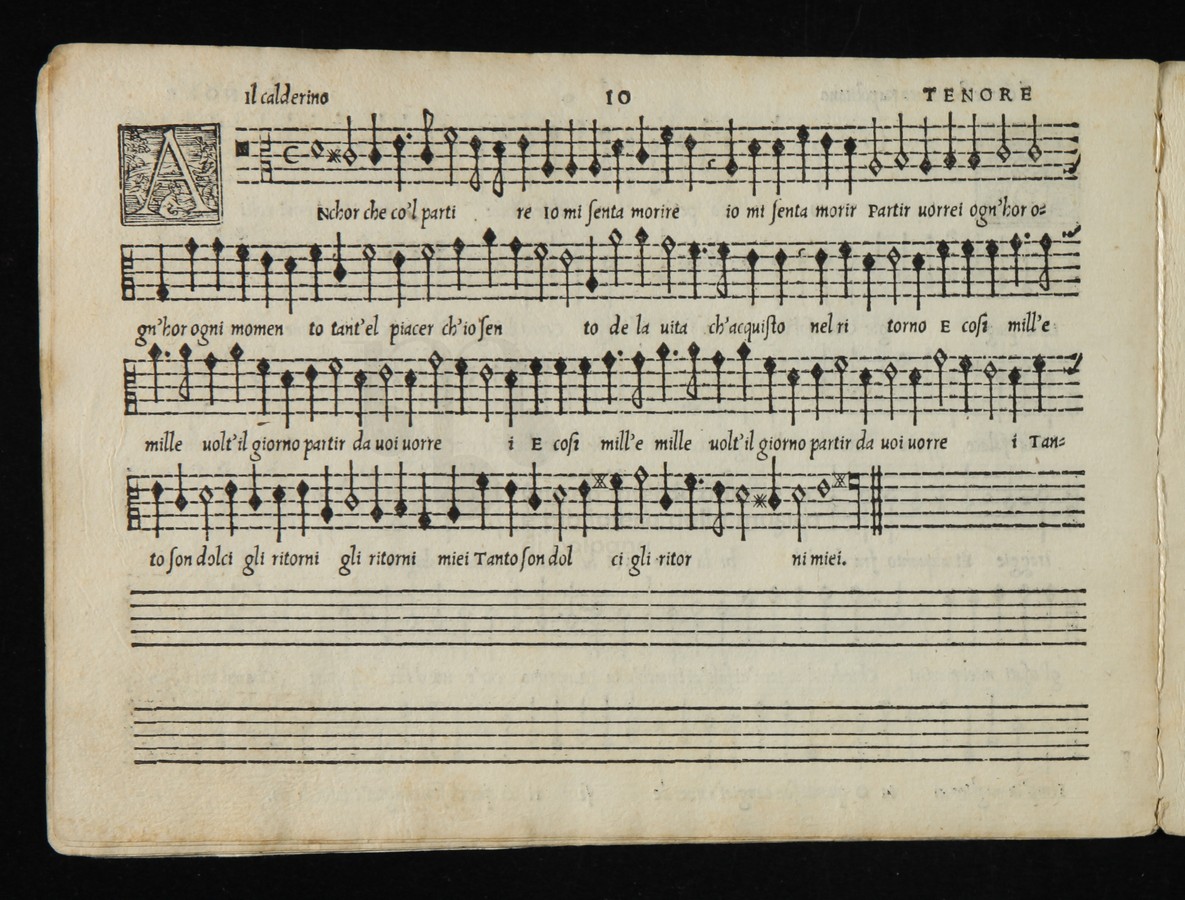 Il calderino 10 TENORE
ANchor che co'l parti re Io mi ſenta morire io mi ſenta morir Partir uorrei ogn'hor o=
gn'hor ogni momen to tant'el piacer ch'io ſen to de la uita ch'acquiſto nel ri torno E coſi mill'e
mille uolt'il giorno partir da uoi uorre i E coſi mill'e mille uolt'il giorno partir da uoi uorre i Tan=
to ſon dolci gli ritorni gli ritorni miei Tanto ſon dol ci gli ritor ni miei.